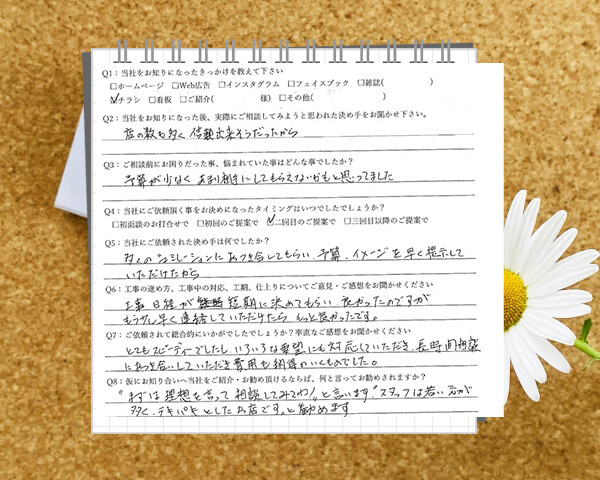 Q1：当社をお知りになったきっかけを教えて下さい
□ホームページ □Web広告 □インスタグラム □フェイスブック □雑誌( )
☑チラシ □看板 □ご紹介( 様) □その他( )
Q2：当社をお知りになった後、実際にご相談してみようと思われた決め手をお聞かせ下さい。
店の数も多く信頼出来そうだったから
Q3：ご相談前にお困りだった事、悩まれていた事はどんな事でしたか？
予算が少なく あまり相手にしてもらえないかもと思ってました
Q4：当社にご依頼頂く事をお決めになったタイミングはいつでしたでしょうか？
□初面談のお打合せで □初回のご提案で ☑二回目のご提案で □三回目以降のご提案で
Q5：当社にご依頼された決め手は何でしたか？
多くのシュミレーションにおつき合してもらい、予算、イメージを早く提示して
いただけたから
Q6：工事の進め方、工事中の対応、工期、仕上りについてご意見・ご感想をお聞かせください
工事日程が 短期に決めてもらい 良かったのですが
もう少し早く連絡していただけたら もっと良かったです。
Q7：ご依頼されて総合的にいかがでしたでしょうか？率直なご感想をお聞かせください
とてもスピーディーでしたし、いろいろな要望にも対応していただき、長時間相談
におつき合していただき費用も納得のいくものでした。
Q8：仮にお知り合いへ当社をご紹介・お勧め頂けるならば、何と言ってお勧めされますか？
"まずは理想を言って相談してみてわ！"と言います"スタッフは若い方が
多く、テキパキとしたお店です。と勧めます